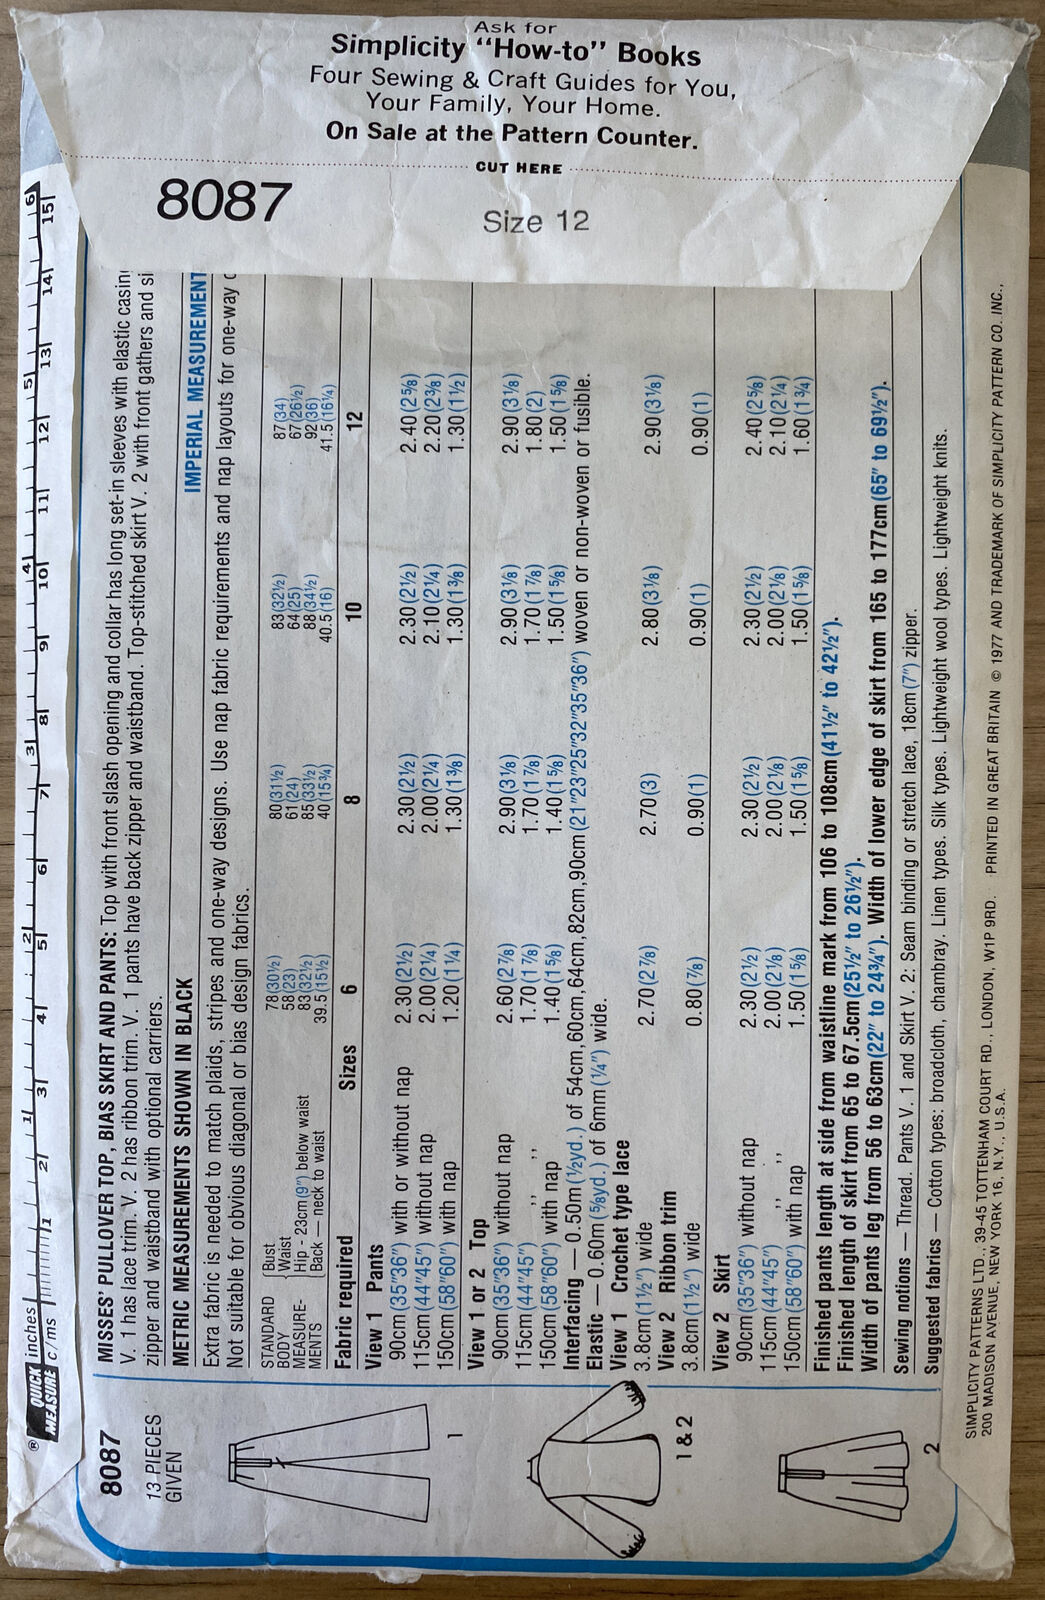 Ask for
Simplicity “How-to” Books
Four Sewing & Craft Guides for You,
Your Family, Your Home.
On Sale at the Pattern Counter.
CUT HERE
8087
Size 12
QUICK MEASURE ® inches 1 2 3 4 5 6
c/ms 1 2 3 4 5 6 7 8 9 10 11 12 13 14 15
8087
13 PIECES
GIVEN
1
1 & 2
2
MISSES' PULLOVER TOP, BIAS SKIRT AND PANTS: Top with front slash opening and collar has long set-in sleeves with elastic casin
V. 1 has lace trim. V. 2 has ribbon trim. V. 1 pants have back zipper and waistband. Top-stitched skirt V. 2 with front gathers and si
zipper and waistband with optional carriers.
METRIC MEASUREMENTS SHOWN IN BLACK IMPERIAL MEASUREMENT
Extra fabric is needed to match plaids, stripes and one-way designs. Use nap fabric requirements and nap layouts for one-way
Not suitable for obvious diagonal or bias design fabrics.
STANDARD Bust 78(30½) 80(31½) 83(32½) 87(34)
BODY Waist 58(23) 61(24) 64(25) 67(26½)
MEASURE- Hip - 23cm(9″) below waist 83(32½) 85(33½) 88(34½) 92(36)
MENTS Back — neck to waist 39.5(15½) 40(15¾) 40.5(16) 41.5(16¼)
Fabric required Sizes 6 8 10 12
View 1 Pants
90cm(35″36″) with or without nap 2.30(2½) 2.30(2½) 2.30(2½) 2.40(2⅝)
115cm(44″45″) without nap 2.00(2¼) 2.00(2¼) 2.10(2¼) 2.20(2⅜)
150cm(58″60″) with nap 1.20(1¼) 1.30(1⅜) 1.30(1⅜) 1.30(1½)
View 1 or 2 Top
90cm(35″36″) without nap 2.60(2⅞) 2.90(3⅛) 2.90(3⅛) 2.90(3⅛)
115cm(44″45″) ,, ,, 1.70(1⅞) 1.70(1⅞) 1.70(1⅞) 1.80(2)
150cm(58″60″) with nap 1.40(1⅝) 1.40(1⅝) 1.50(1⅝) 1.50(1⅝)
Interfacing — 0.50m(½yd.) of 54cm,60cm,64cm,82cm,90cm(21″23″25″32″35″36″) woven or non-woven or fusible.
Elastic — 0.60m(⅝yd.) of 6mm(¼″) wide.
View 1 Crochet type lace
3.8cm(1½″) wide 2.70(2⅞) 2.70(3) 2.80(3⅛) 2.90(3⅛)
View 2 Ribbon trim
3.8cm(1½″) wide 0.80(⅞) 0.90(1) 0.90(1) 0.90(1)
View 2 Skirt
90cm(35″36″) without nap 2.30(2½) 2.30(2½) 2.30(2½) 2.40(2⅝)
115cm(44″45″) ,, ,, 2.00(2⅛) 2.00(2⅛) 2.00(2⅛) 2.10(2¼)
150cm(58″60″) with nap 1.50(1⅝) 1.50(1⅝) 1.50(1⅝) 1.60(1¾)
Finished pants length at side from waistline mark from 106 to 108cm(41½″ to 42½″).
Finished length of skirt from 65 to 67.5cm(25½″ to 26½″).
Width of pants leg from 56 to 63cm(22″ to 24¾″). Width of lower edge of skirt from 165 to 177cm(65″ to 69½″).
Sewing notions — Thread. Pants V. 1 and Skirt V. 2: Seam binding or stretch lace, 18cm(7″) zipper.
Suggested fabrics — Cotton types: broadcloth, chambray. Linen types. Silk types. Lightweight wool types. Lightweight knits.
SIMPLICITY PATTERNS LTD., 39-45 TOTTENHAM COURT RD., LONDON, W1P 9RD. PRINTED IN GREAT BRITAIN © 1977 AND TRADEMARK OF SIMPLICITY PATTERN CO. INC.,
200 MADISON AVENUE, NEW YORK 16, N.Y., U.S.A.